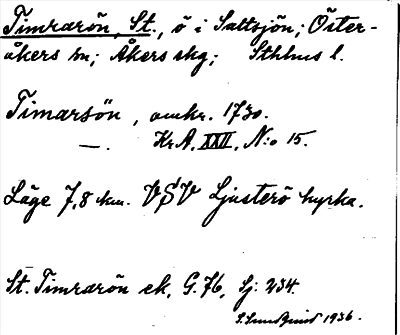 Timrarön, St., ö i Saltsjön; Öster-
åkers sn; Åkers skg; Sthlms l.
Timarsön, omkr. 1730.
—. Kr.A. XXII, N:o 15.
Läge 7,8 km. VSV Ljusterö kyrka.
St. Timrarön ek, G. 76, Lj: 234.
S. Lundquist 1936.